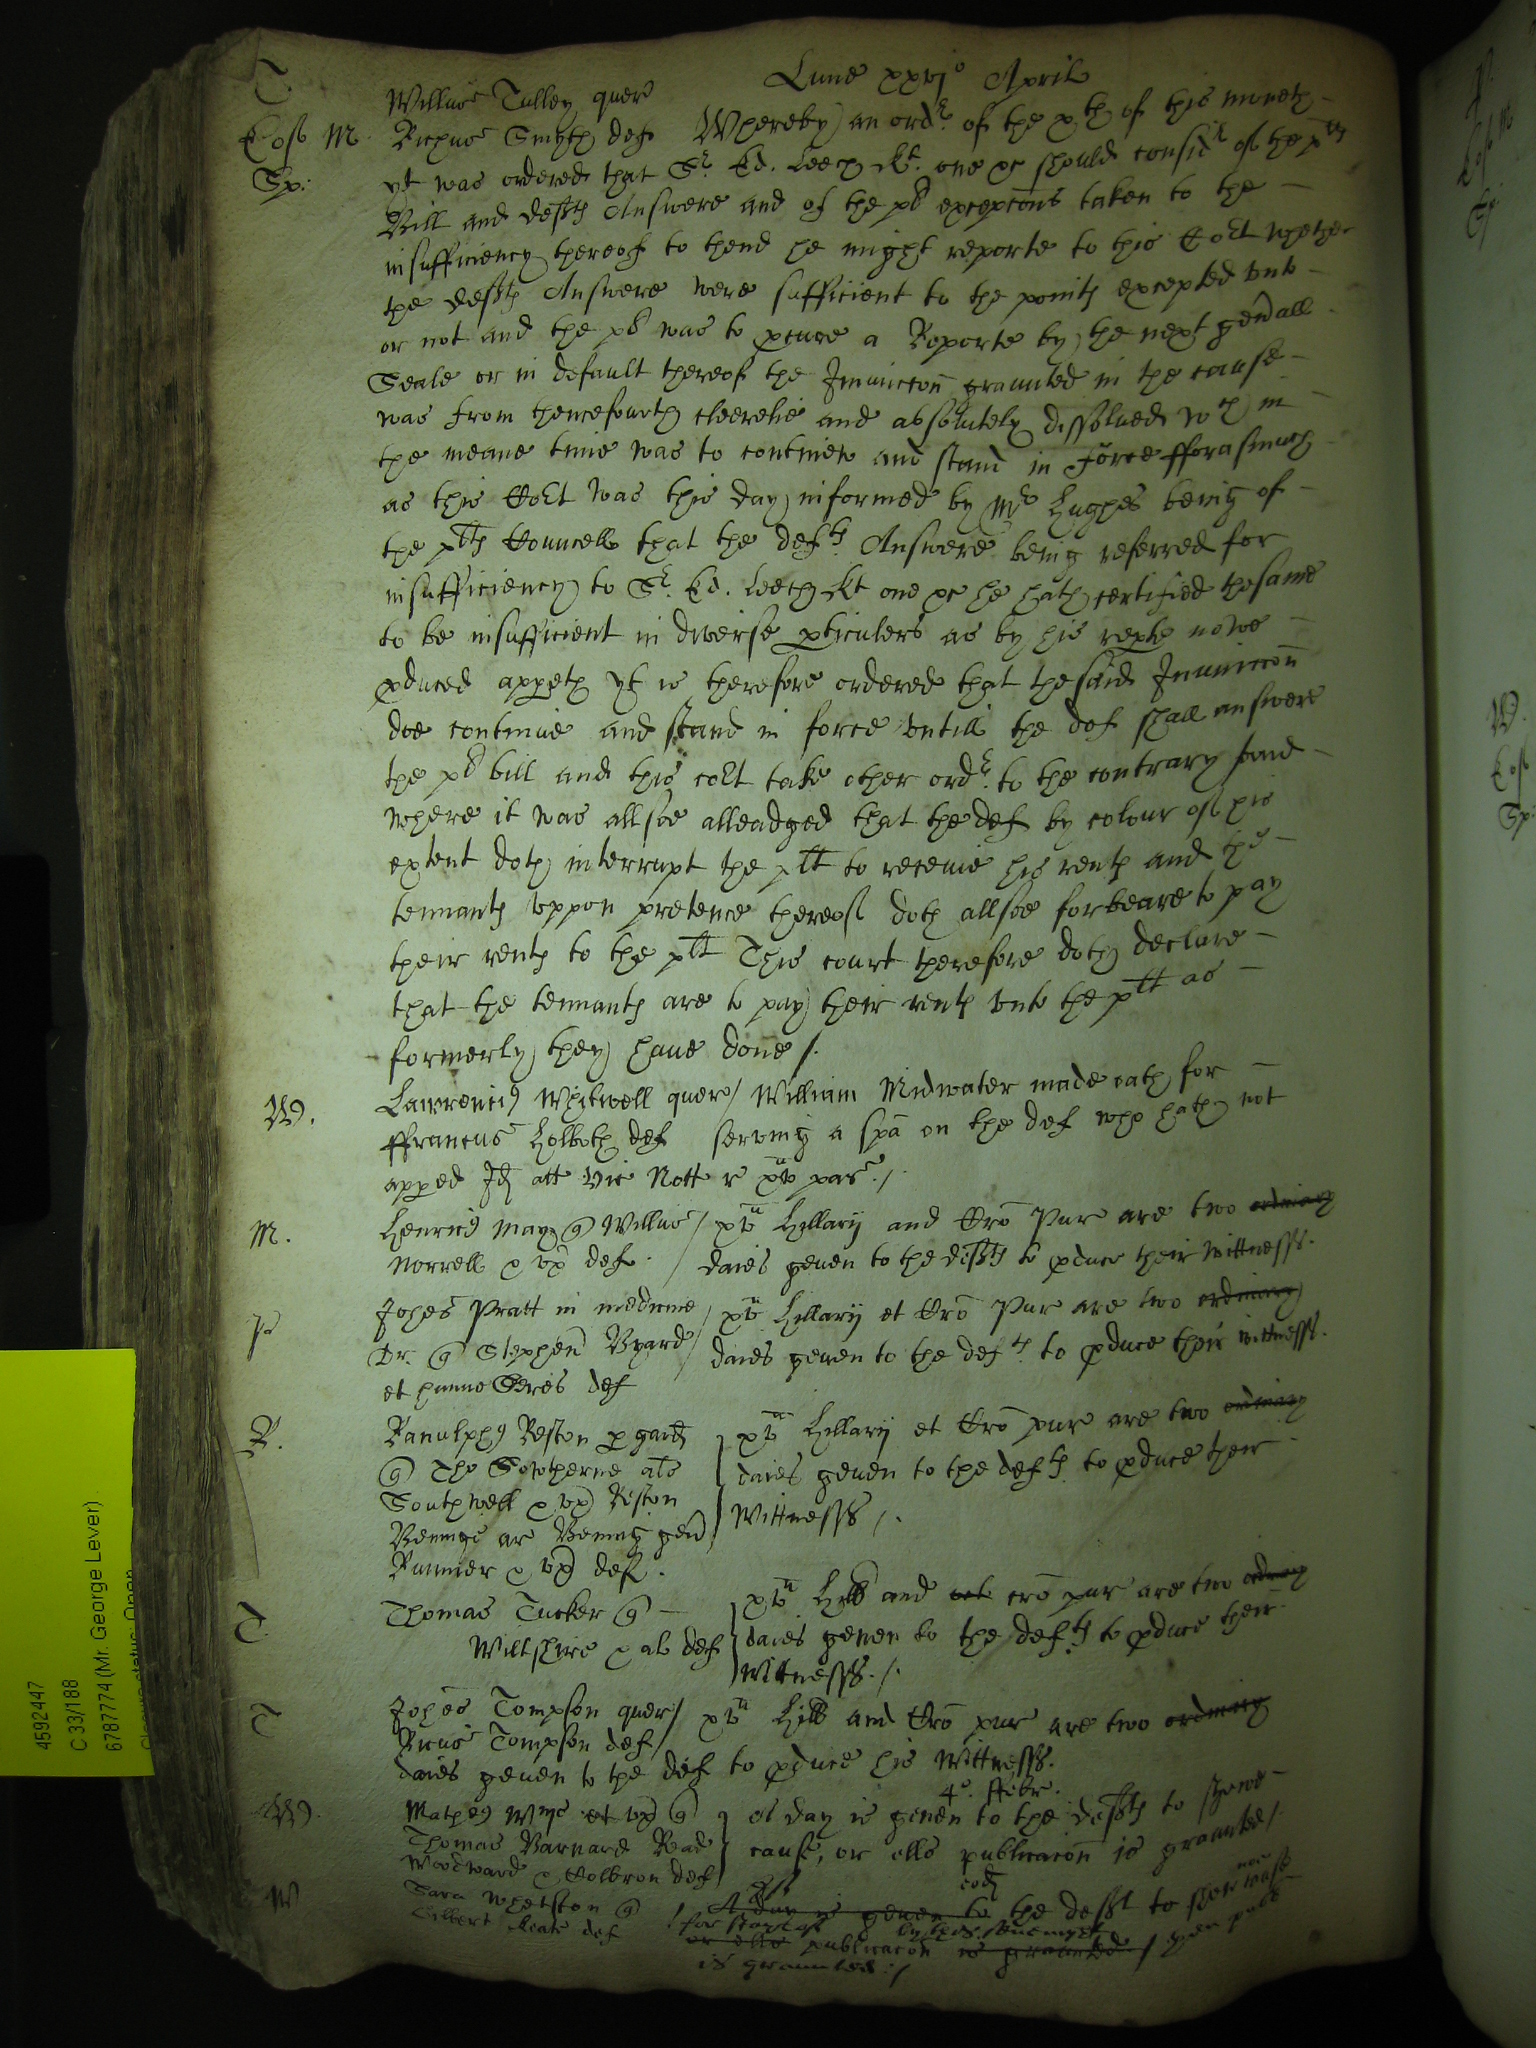 Lune xxvjo April
T Willus Tulley quer
Cost M. Richus Smyth def Whereby an ordr. of the xth of this moneth
Sp: yt was ordered that Sr. Ed. Leech kt. one &c should considr of the pltes
Bill and deftes Answere and of the pl excepcons taken to the
insufficiency thereof to thend he might reporte to this Cort whether
the deftes Answere were sufficient to the pointes excepted vnto
or not and the pl was to pcure a Reporte by the next genall
Seale or in default thereof the Iniunccon graunted in the cause
was from thencefourth cleerelie and absolutely dissolued wch in
the meane time was to contineu and stand in force fforasmuch
as this Cort was this day informed by Mr Hughes being of
the pltes Councell that the deftes. Answere being referred for
insufficiency to Sr. Ed. Leech kt one &c he hath certified thesame
to be insufficient in diverse pticulers as by his reporte nowe
pduced appeth yt is therefore ordered that the said Iniunccon
doe continue and stand in force vntill the def shall answere
the pl bill and this cort take other ordr. to the contrary And
where it was allsoe alleadged that the def by colour of his
extent doth interrupt the plt to receiue his rentes and the
tennantes vppon pretence thereof doth allsoe forbeare to pay
their rentes to the plt This court therefore doth declare
that the tennantes are to pay their rentes vnto the plt as
formerly they haue done /.
W. Lawrencius Whitwell quer / William Midwater made oath for
ffrancus Holboth def serving a spa on the def who hath not
apped Id att vic Nott r xv pas. /.
M. Henricus May q Willus / xv Hillarij and Cro Pur are two ordinary
Norrell & vx def. / daies geuen to the deftes to pduce their wittnesses.
P Johes Pratt in medicine / xv Hillarij et Cro Pur are two ordinary
Dr. q Stephen Byard / daies geuen to the deftes. to pduce their wittnesses.
et def
R. Ranulphus Reston p gard xv Hillarij et Cro pur are two ordinary
q Tho Sowtherne als daies geuen to the deftes to pduce their
Southwell & vx Reston Wittnesses /.
ar gen
& vx def.
T. Thomas Tucker q xv Hill and Cro pur are two ordinary
Wiltshire & al def daies geuen to the deftes to pduce their
Wittnesses. /.
T Johes Tompson quer / xv Hill and Cro pur are two ordinary
Ricus Tompson def / daies geuen to the def to pduce his Wittnesses.
4o. ffebr.
W. Matheus Wms et vx q A day is geuen to the deftes to shewe
Thomas Barnard Read cause, or ells publicacon is graunted /
Woodward & Colbron def
W Sara Whetston q A day is geuen to the deft to shew cause
Gilbert Keate def or ells publicacon is graunted
is graunted. /
4592447
C 33/188
6787774 (Mr. George Lever)